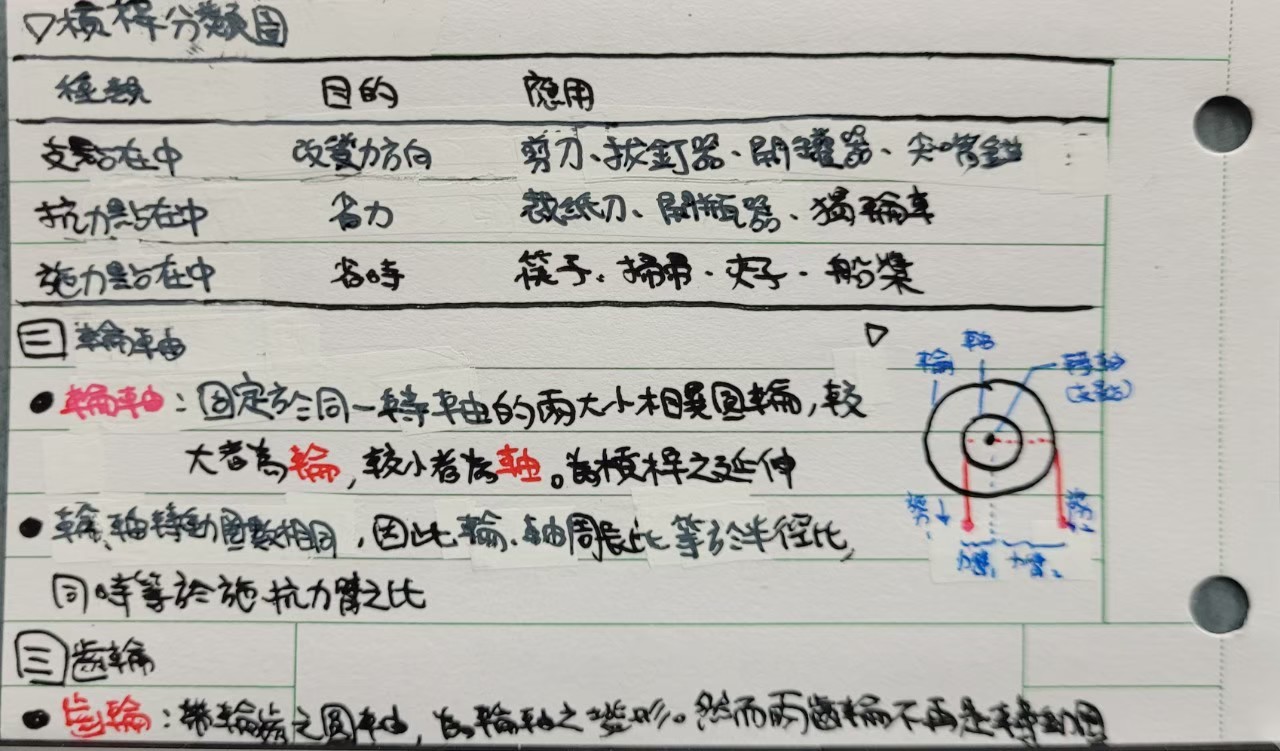 ▽槓桿分類圖
種類 目的 應用
支點在中 改變力方向 剪刀、拔釘器、開罐器、尖嘴鉗
抗力點在中 省力 裁紙刀、開瓶器、獨輪車
施力點在中 省時 筷子、掃帚、夾子、船槳
三 輪軸
▽
輪 軸 轉軸
(支點)
● 輪軸:固定於同一轉軸的兩大小相異圓輪,較
大者為輪,較小者為軸。為槓桿之延伸
● 輪、軸轉動圈數相同,因此輪、軸周長比等於半徑比,
同時等於施、抗力臂之比
力臂₁ 力臂₂
三 齒輪
● 齒輪:帶輪齒之圓軸,為輪軸之變形。然而兩齒輪不再是轉動圈